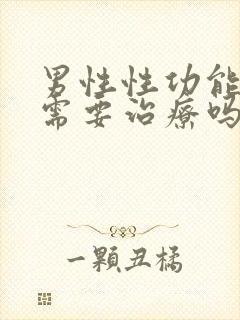 男性性功能
需要治療吗
一顆丑橘